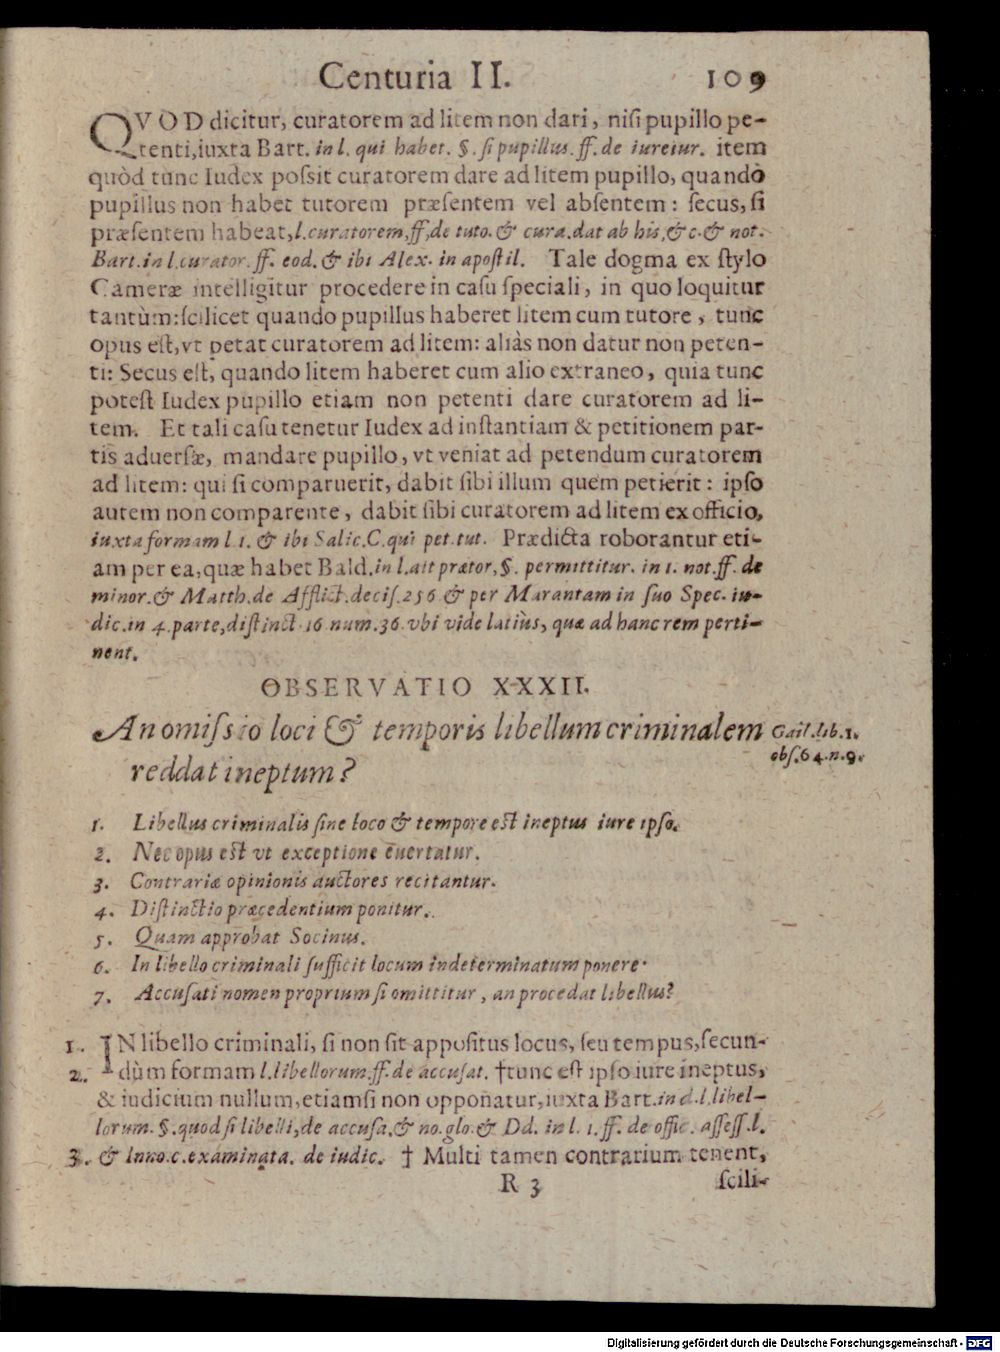 Centuria II. 109
QVOD dicitur, curatorem ad litem non dari, nisi pupillo pe-
tenti, iuxta Bart. in l. qui habet. §. si pupillus. ff. de iureiur. item
quòd tunc Iudex possit curatorem dare ad litem pupillo, quandò
pupillus non habet tutorem præsentem vel absentem: secus, si
præsentem habeat, l. curatorem, ff, de tuto. & cura. dat ab his, & c. & not.
Bart. in l. curator. ff. eod. & ibi Alex. in apostil. Tale dogma ex stylo
Cameræ intelligitur procedere in casu speciali, in quo loquitur
tantùm: scilicet quando pupillus haberet litem cum tutore, tunc
opus est, vt petat curatorem ad litem: aliàs non datur non peten-
ti: Secus est, quando litem haberet cum alio extraneo, quia tunc
potest Iudex pupillo etiam non petenti dare curatorem ad li-
tem. Et tali casu tenetur Iudex ad instantiam & petitionem par-
tis aduersæ, mandare pupillo, vt veniat ad petendum curatorem
ad litem: qui si comparuerit, dabit sibi illum quem petierit: ipso
autem non comparente, dabit sibi curatorem ad litem ex officio,
iuxta formam l 1. & ibi Salic. C. qui pet. tut. Prædicta roborantur eti-
am per ea, quæ habet Bald. in l. ait prætor, §. permittitur. in 1. not. ff. de
minor. & Matth. de Afflict. decis. 256 & per Marantam in suo Spec. iu-
dic. in 4. parte, distinct. 16 num. 36. vbi vide latiùs, quæ ad hanc rem perti-
nent.
OBSERVATIO XXXII.
An omissio loci & temporis libellum criminalem
reddat ineptum?
Gail. lib. 1.
obs. 64. n. 9.
1. Libellus criminalis sine loco & tempore est ineptus iure ipso.
2. Nec opus est vt exceptione euertatur.
3. Contrariæ opinionis auctores recitantur.
4. Distinctio præcedentium ponitur.
5. Quam approbat Socinus.
6. In libello criminali sufficit locum indeterminatum ponere.
7. Accusati nomen proprium si omittitur, an procedat libellus?
1. IN libello criminali, si non sit appositus locus, seu tempus, secun-
2. dùm formam l. libellorum. ff. de accusat. †tunc est ipso iure ineptus,
& iudicium nullum, etiamsi non opponatur, iuxta Bart. in d. l. libel-
lorum. §. quod si libelli, de accusa. & no. glo. & Dd. in l. 1. ff. de offic. assess. l.
3. & Inno. c. examinata. de iudic. † Multi tamen contrarium tenent,
R 3 scili-
Digitalisierung gefördert durch die Deutsche Forschungsgemeinschaft - DFG